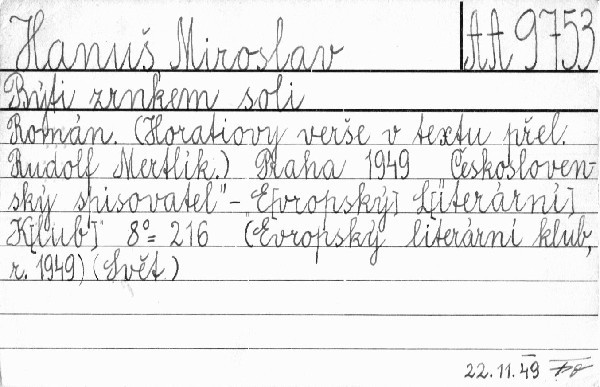 Hanuš Miroslav AA 9753
Býti zrnkem soli
Román. (Horatiovy verše v textu přel.
Rudolf Mertlík.) Praha 1949 Českosloven-
ský spisovatel" - E[vropský] L[iterární]
K[lub] 8° = 216 (Evropský literární klub,
r. 1949) (Svět.)
22.11.49